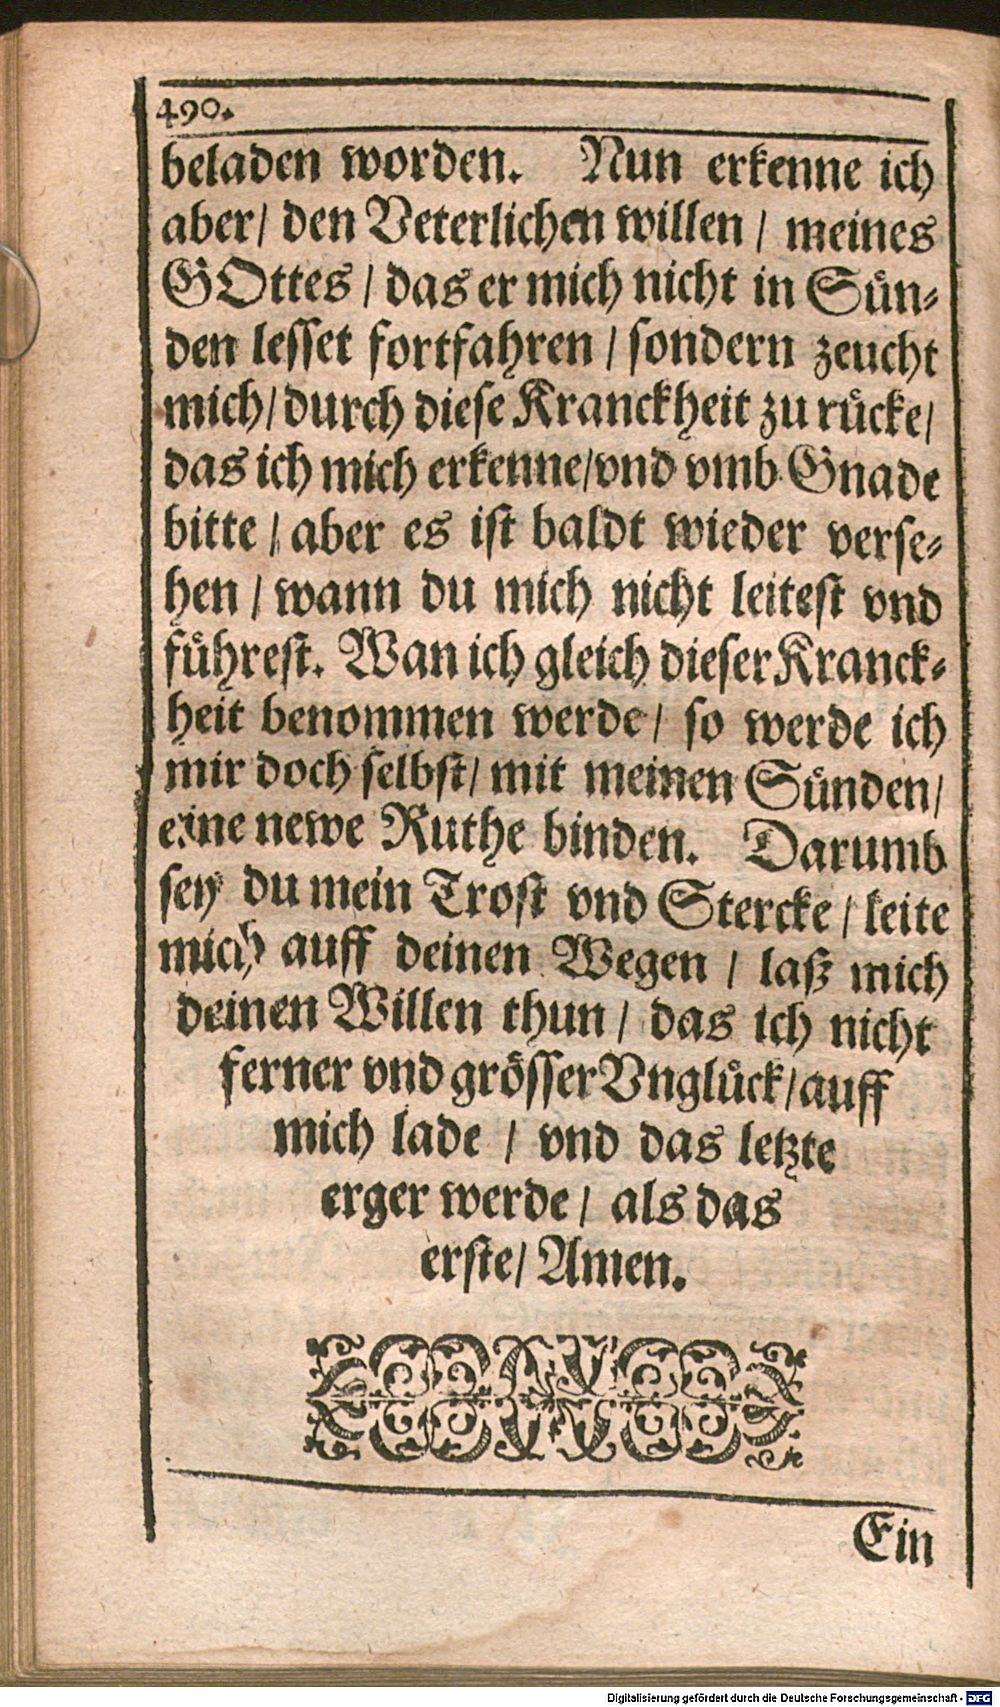 490.
beladen worden. Nun erkenne ich
aber/ den Veterlichen willen / meines
GOttes / das er mich nicht in Sün⸗
den lesset fortfahren / sondern zeucht
mich/ durch diese Kranckheit zu rücke/
das ich mich erkenne/ vnd vmb Gnade
bitte / aber es ist baldt wieder verse⸗
hen / wann du mich nicht leitest vnd
führest. Wan ich gleich dieser Kranck⸗
heit benommen werde / so werde ich
mir doch selbst/ mit meinen Sünden/
eine newe Ruthe binden. Darumb
sey du mein Trost vnd Stercke / leite
mich auff deinen Wegen / laß mich
deinen Willen thun / das ich nicht
ferner vnd grösser Vnglück/ auff
mich lade / vnd das letzte
erger werde / als das
erste/ Amen.
Ein
Digitalisierung gefördert durch die Deutsche Forschungsgemeinschaft - DFG